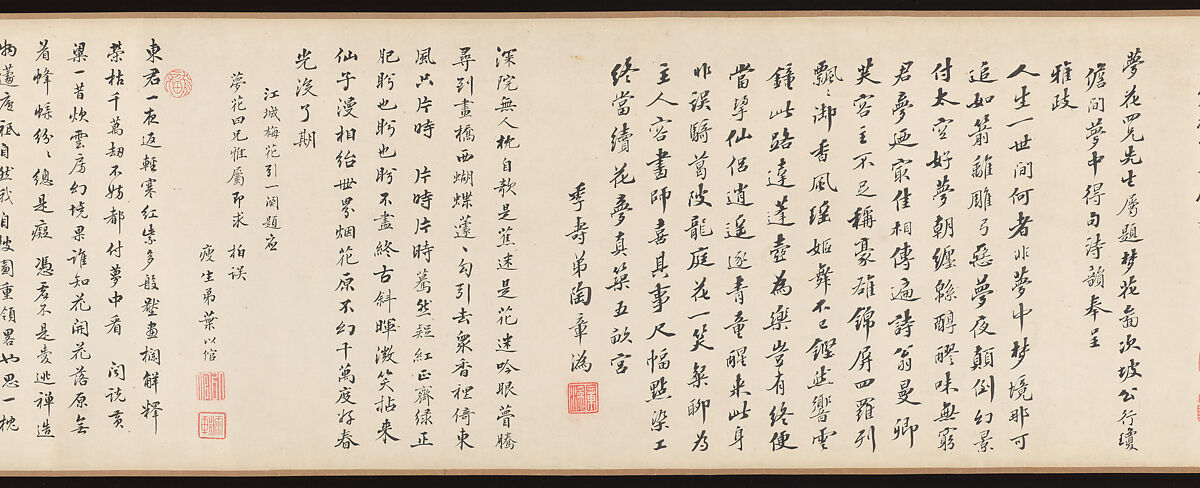 夢花四兄先生屬題梦花圖次坡公行瓊
儋間夢中得句詩韻奉呈
雅政
人生一世間何者非夢中梦境那可
追如箭離雕弓惡夢夜顛倒幻景
付太空好夢朝纏緜醇醪味無窮
君夢迺最佳相傳遍詩翁曼卿
芙容主不足稱豪雄錦屏四羅列
飄〻御香風瑤姬舞不已鏗然響雲
鐘此路達蓬壺為樂豈有終便
當挈仙侶逍遥逐青童醒来此身
非誤騎葛陂龍庭花一笑粲聊為
主人容畫師喜具事尺幅點染工
終當續花夢真築五畝宮
季壽弟陶章溈
深院無人枕自欹是蕉迷是花迷吟眼瞢騰
尋到畫橋西蝴蝶蘧〻勾引去衆香裡倚東
風只片時 片時片時驀然短紅正齊緑正
肥盻也盻也盻不盡終古斜暉微笑拈来
仙子漫相紿世界烟花原不幻千萬度好春
光没了期
江城梅花引一闋題應
夢花四兄雅屬即求 拍误
瘦生弟葉以倌
東君一夜返輕寒紅紫多般壓畫欄解釋
榮枯千萬劫不妨都付夢中看 閔説黄
粱一昔炊雲房幻境果誰知花開花落原無
着蜂蝶紛〻總是癡 憑君不是愛逃禪造
物蘧廬祗自然我自披圖重領畧也思一枕